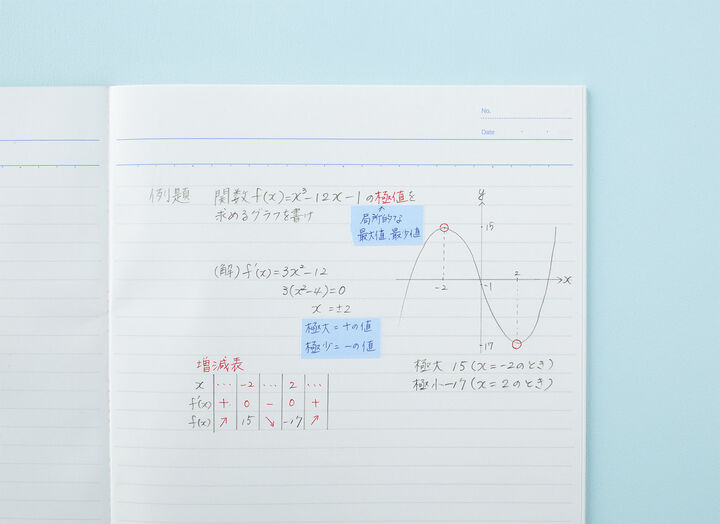 No.
Date
例題 関数 f(x)=x³-12x-1の極値を
求めるグラフを書け
局所的な
最大値、最少値
(解) f'(x)=3x²-12
3(x²-4)=0
x=±2
極大=+の値
極少=-の値
増減表
x … -2 … 2 …
f'(x) + 0 - 0 +
f(x) ↗ 15 ↘ -17 ↗
y
15
-2
-1
2
x
-17
極大 15 (x=-2のとき)
極小-17 (x=2のとき)